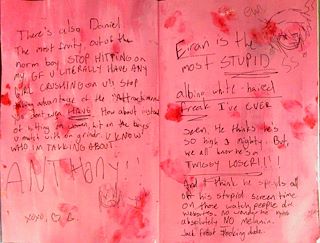 There's also Daniel
The most out of the
norm boy. STOP HITTING on
my GF U LITERALLY HAVE ANY
CRUSHING on U!! Stop
taking advantage of the
You don't even HAVE. How about instead
of hitting on women hit on the boys
u match with on grindr. U KNOW
WHO IM TALKING ABOUT
ANTHONY!!
xoxo,
ew
Eiran is the
most STUPID
albino white-haired
Freak I'VE EVER
seen. He thinks he's
so high & mighty. But,
we all know he's a
TWASBY LOSER!!!!
And I think he spends all
of his stupid screen time
on those watch people die
websites. No wonder he has
absolutely NO MELANIN.
Jack frost looking dude.